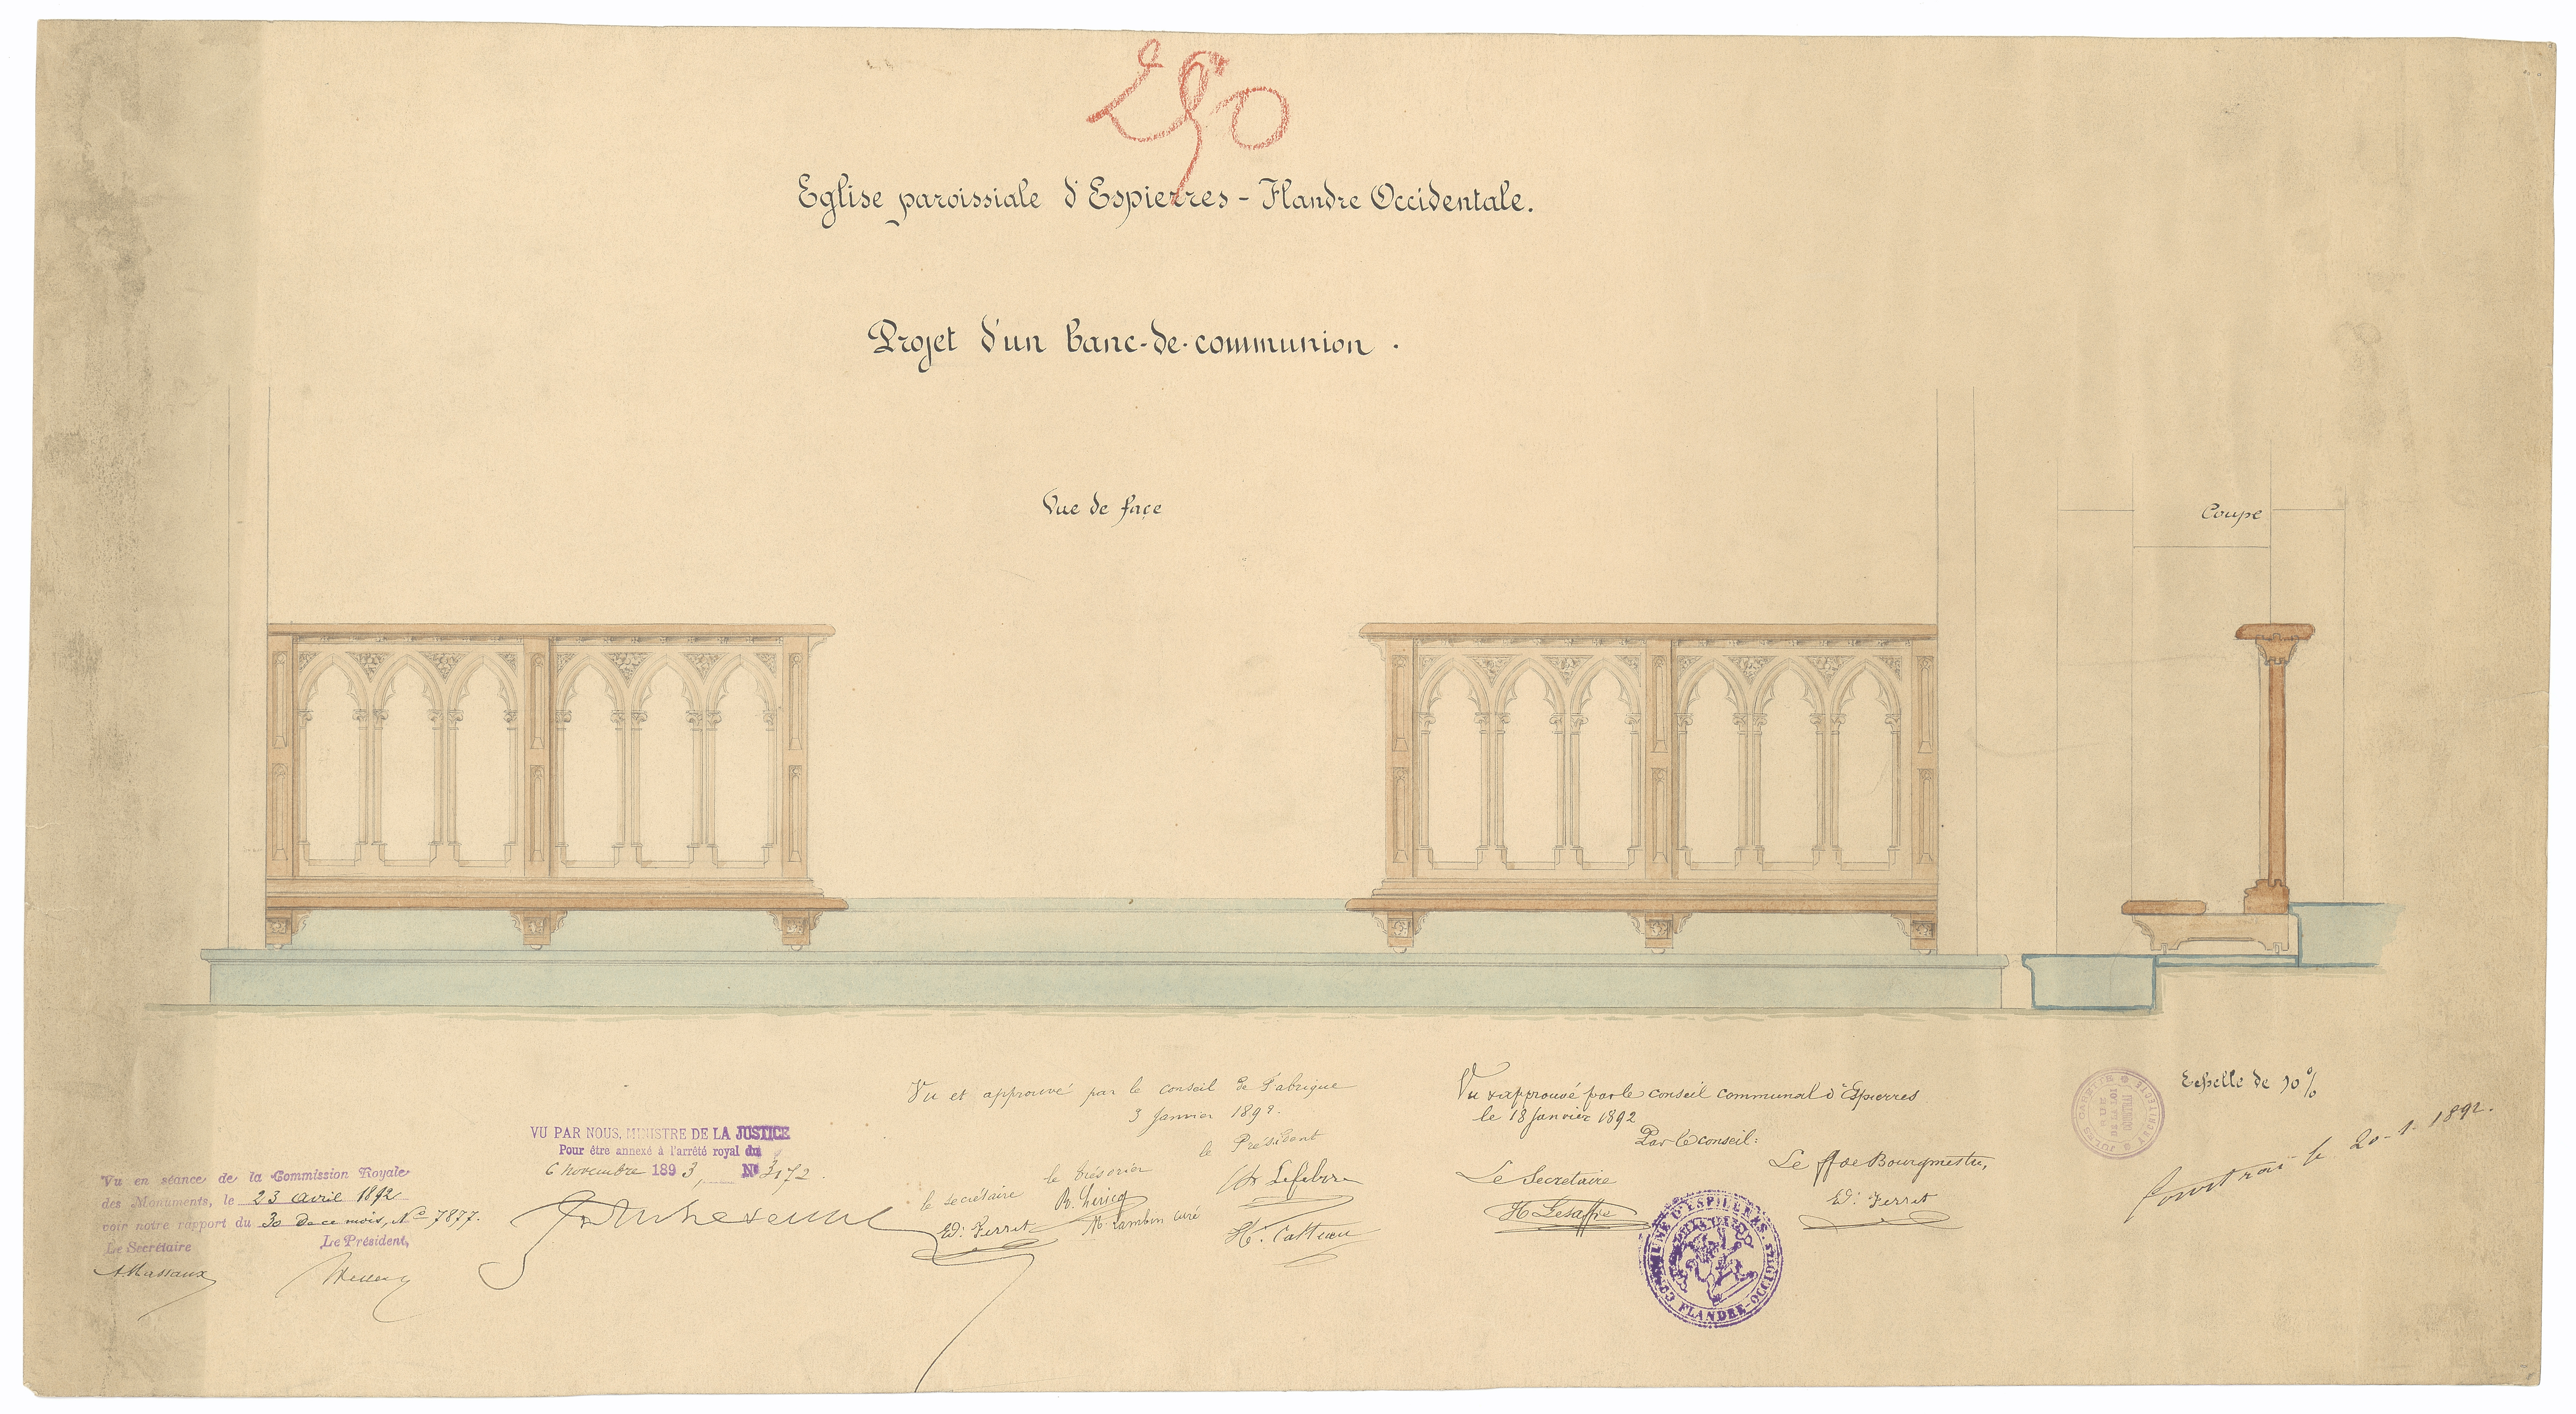 250
Eglise paroissiale d'Espierres - Flandre Occidentale.
Projet d'un banc-de-communion.
Vue de façe
Coupe
Vu et approuvé par le conseil de fabrique
3 Janvier 1892.
le Président
le trésorier
le secrétaire
Ed. Ferret
H. Catteau
Vu & approuvé par le conseil communal d'Espierres
le 18 Janvier 1892
Par le conseil:
Le Secretaire
Le ff de Bourgmestre,
H Lesaffre
Ed. Ferret
COMMUNE D'ESPIERRES. FLANDRE-OCCIDENTALE
Echelle de 10%
Courtrai le 20-1-1892.
VU PAR NOUS, MINISTRE DE LA JUSTICE
Pour être annexé à l'arrêté royal du
6 novembre 1893, N° 3172.
Vu en séance de la Commission Royale
des Monuments, le 23 avril 1892
voir notre rapport du 30 de ce mois, N° 7877.
Le Secrétaire
Le Président,
A Massaux